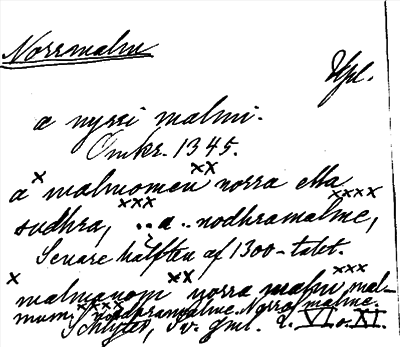 Norrmalm
Upl.
a nyrri malmi.
Omkr. 1345.
a malmomen norra ella
sudhra, ..a.. nodhramalme,
Senare hälften af 1300-talet.
malmenom norra malm mal-
mum, nordhramalme. Norra malme.
Schlyter, Sv. Gml. L. VI o. XI.